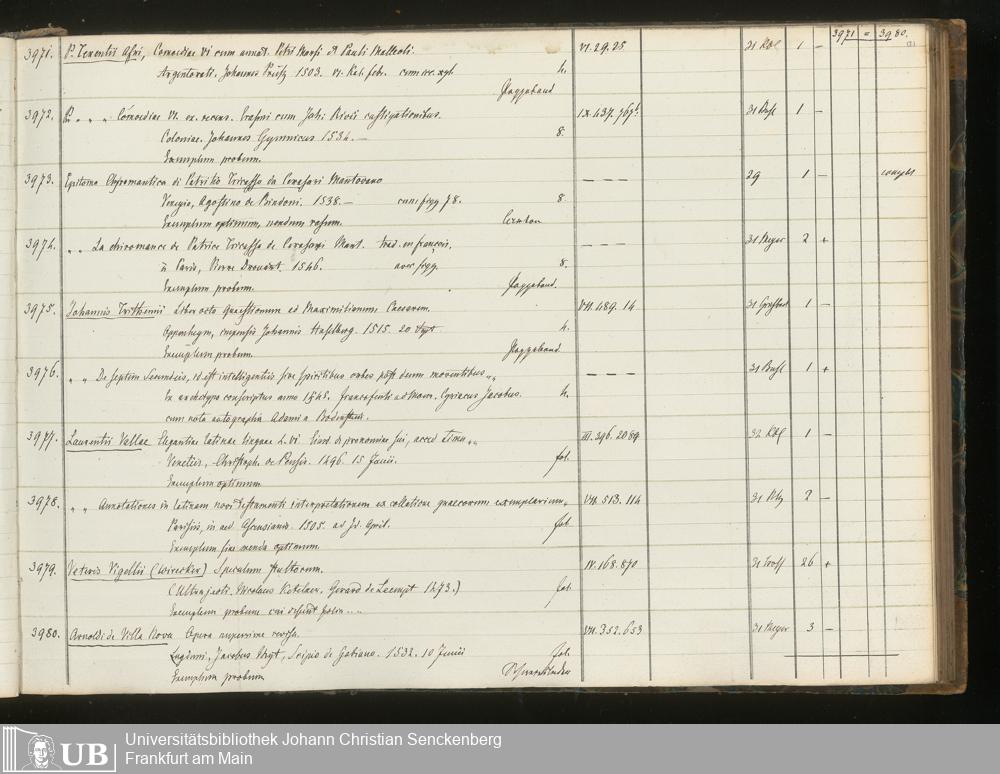 3971 = 3980.
3971. P. Terentii Afri, Comoediae VI cum annot. Petri Marsi et Pauli Malleoli. VI. 29. 25 31 1 –
Argentorati. Johannes Prüsz 1503. VI. Kal. febr. cum 4.
Pappeband
3972. P. „ „ „ Comoediae VI. ex recens. Erasmi cum Joh. Rivii castigationibus. IX. 437. 767b. 31 1 –
Coloniae. Johannes Gymnicus 1534. — 8.
Exemplum probum.
3973. Epitoma Chyromantica di Patritio Tricasso da Ceresari Mantovano — — — 29 1 –
Venegia, Agostino de Bindoni. 1538. — cum figg. 78. 8.
Exemplum optimum, nondum rasum.
3974. „ „ La chiromance de Patrice Tricasse de Ceresare Mant. trad. en françois, — — — 31 Meyer 2 +
à Paris, Pierre Drouart. 1546. avec figg. 8.
Exemplum probum. Pappeband.
3975. Johannis Trithemii Liber octo Quaestionum ad Maximilianum Caesarem. VII. 489. 14 31 1 –
Oppenheym, impensis Johannis Haselberg. 1515. 20 Sept 4.
Exemplum probum. Pappeband
3976. „ „ De septem Secundeis, id est intelligentiis sive spiritibus orbes post deum moventibus „ — — — 31 1 +
Ex archetypo conscriptus anno 1545. Francofurti ad Moen. Cyriacus Jacobus. 4.
cum nota autographa Adami a Bodenstein.
3977. Laurentii Vallae Elegantiae latinae linguae L. VI. Ejusd. de pronomine sui, acced. III. 396. 2089 32 1 –
Venetiis, Christoph. de Pensis. 1496. 15 Junii. fol.
Exemplum optimum
3978. „ „ Annotationes in latinam novi testamenti interpretationem ex collatione graecorum exemplarium „ VII. 513. 114 31 2 –
Parisiis, in aed. Ascensianis. 1505. ad Id. April. fol
Exemplum sine menda optimum.
3979. Veteris Vigellii (Wirecker) Speculum stultorum. IV. 168. 870 31 26 +
(Ultrajecti. Nicolaus Ketelaer, Gerard de Leempt 1473.) fol.
Exemplum probum cui desunt
3980. Arnoldi de Villa Nova Opera nuperrime revisa. VII. 352. 653 31 Meyer 3 –
Lugduni, Jacobus Myt, Scipio de Gabiano. 1532. 10 Junii fol.
Exemplum probum
UB
Universitätsbibliothek Johann Christian Senckenberg
Frankfurt am Main